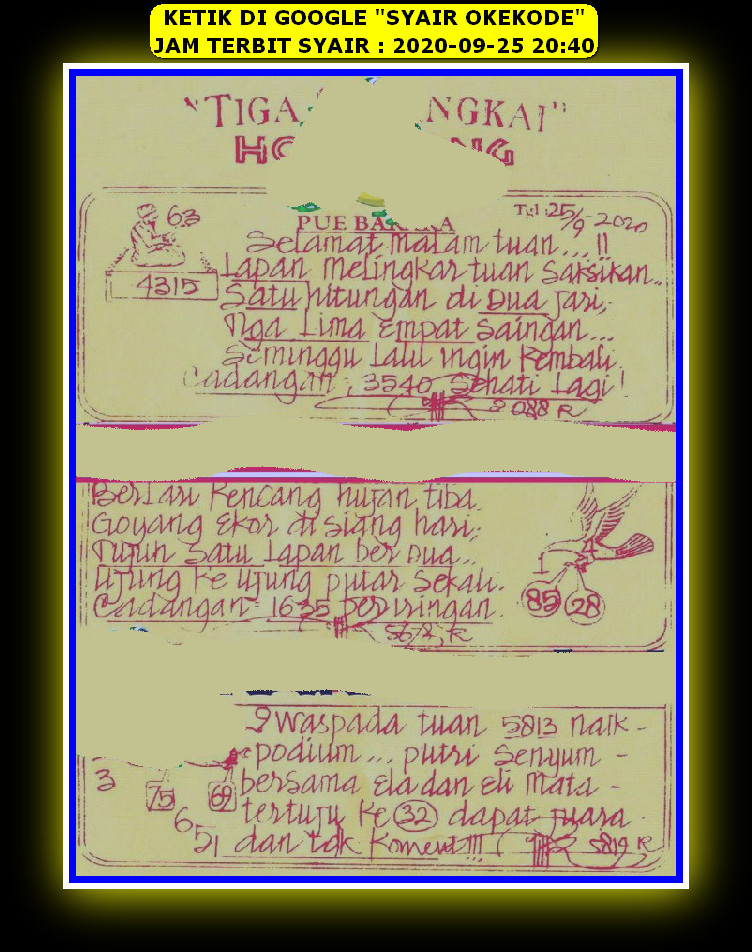 KETIK DI GOOGLE "SYAIR OKEKODE"
JAM TERBIT SYAIR : 2020-09-25 20:40
"TIGA NGKAI"
HO NG
63
4315
PUE BA A
Tgl:25/9-2020
Selamat malam tuan...!!
Lapan Melingkar tuan saksikan..
Satu hitungan di Dua jari,
Tiga Lima Empat saingan...
Seminggu lalu ingin kembali
Cadangan, 3540 Sehati Lagi!
R
Berlari kencang hujan tiba.
Goyang Ekor di siang hari,
Tujuh Satu Lapan ber Dua...
Ujung ke ujung putar sekali.
Cadangan 1635 per iringan.
R
1
4
85 28
9 Waspada tuan 5813 naik -
podium... putri senyum -
bersama Ela dan Eli Mata -
tertuju ke 32 dapat juara
dan tak Koment!!!
5819 R
3
75 69
6
51